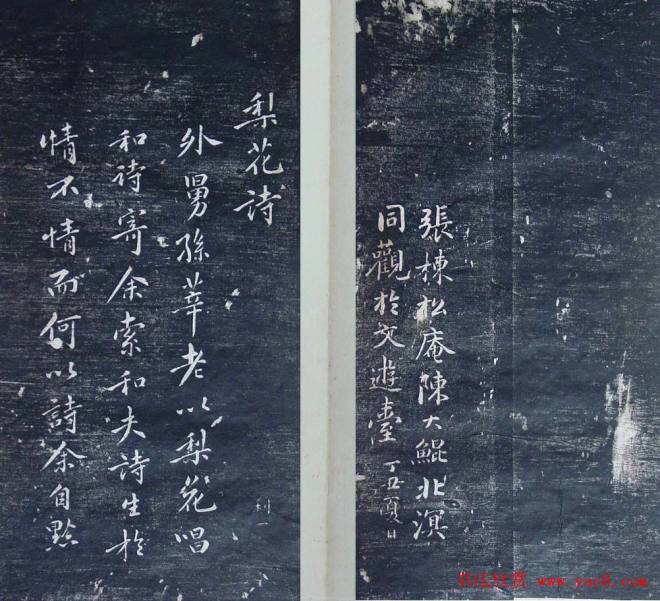 張棟松庵陳大鯤北溟
同觀於文遊臺 丁丑夏日
梨花詩
外舅孫莘老以梨花唱
和詩寄余索和夫詩生於
情不情而何以詩余自黔
利一
书法欣赏 www.yac8.com